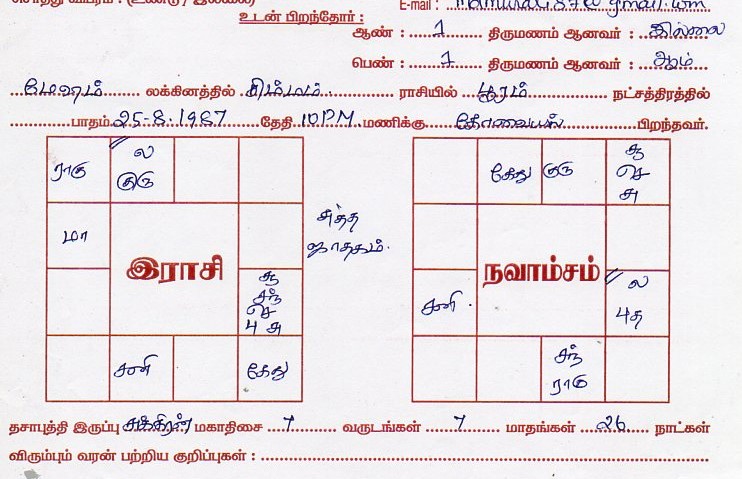 E-mail :
உடன் பிறந்தோர் :
ஆண் : 1 திருமணம் ஆனவர் : இல்லை
பெண் : 1 திருமணம் ஆனவர் : ஆம்
மேஷம் லக்கினத்தில் சிம்மம் ராசியில் பூரம் நட்சத்திரத்தில்
பாதம் 25-8-1987 தேதி 10PM மணிக்கு கோவையில் பிறந்தவர்.
ராகு
ல
குரு
மா
இராசி
சூ
சந்
செ
பு சு
சனி
கேது
சுத்த
ஜாதகம்.
கேது
குரு
சூ
செ
சு
நவாம்சம்
சனி
ல
புத
சந்
ராகு
தசாபுத்தி இருப்பு சுக்கிரன் மகாதிசை 7 வருடங்கள் 7 மாதங்கள் 26 நாட்கள்
விரும்பும் வரன் பற்றிய குறிப்புகள் :